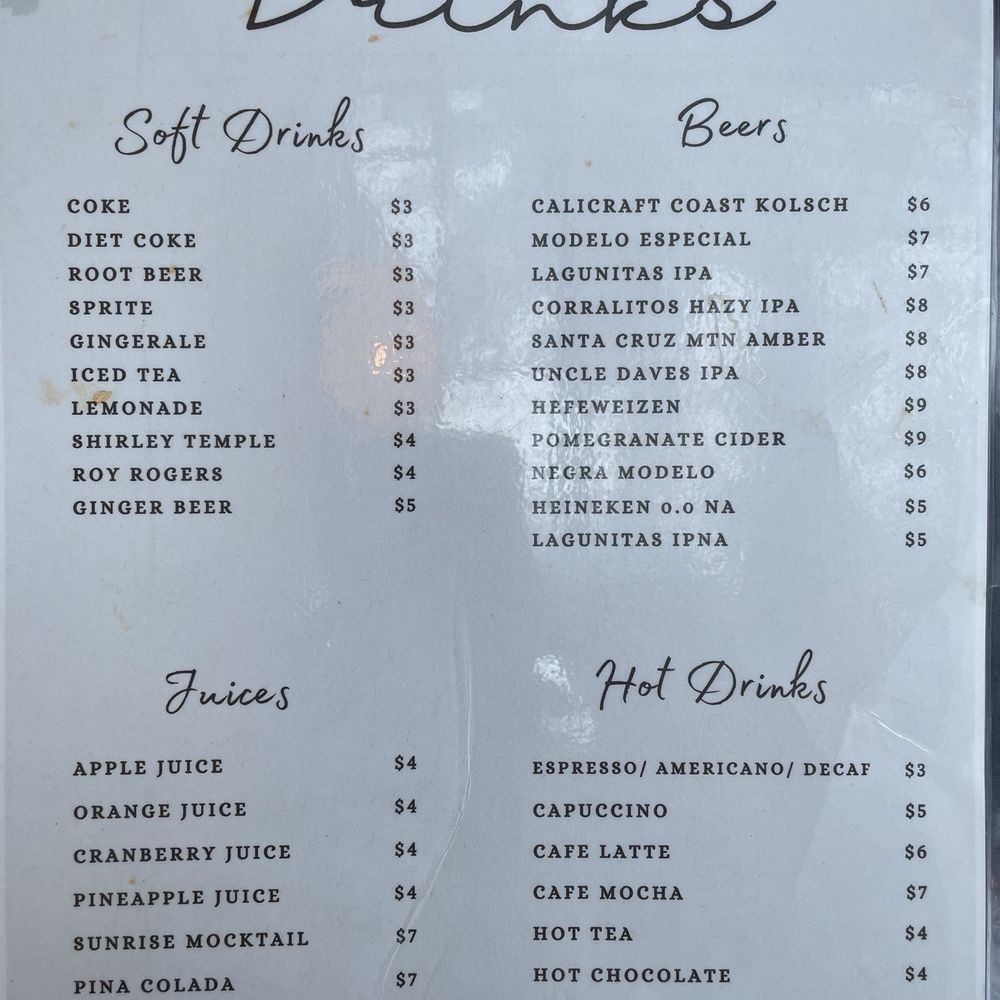 Drinks
Soft Drinks
COKE $3
DIET COKE $3
ROOT BEER $3
SPRITE $3
GINGERALE $3
ICED TEA $3
LEMONADE $3
SHIRLEY TEMPLE $4
ROY ROGERS $4
GINGER BEER $5
Beers
CALICRAFT COAST KOLSCH $6
MODELO ESPECIAL $7
LAGUNITAS IPA $7
CORRALITOS HAZY IPA $8
SANTA CRUZ MTN AMBER $8
UNCLE DAVES IPA $8
HEFEWEIZEN $9
POMEGRANATE CIDER $9
NEGRA MODELO $6
HEINEKEN 0.0 NA $5
LAGUNITAS IPNA $5
Juices
APPLE JUICE $4
ORANGE JUICE $4
CRANBERRY JUICE $4
PINEAPPLE JUICE $4
SUNRISE MOCKTAIL $7
PINA COLADA $7
Hot Drinks
ESPRESSO/ AMERICANO/ DECAF $3
CAPUCCINO $5
CAFE LATTE $6
CAFE MOCHA $7
HOT TEA $4
HOT CHOCOLATE $4